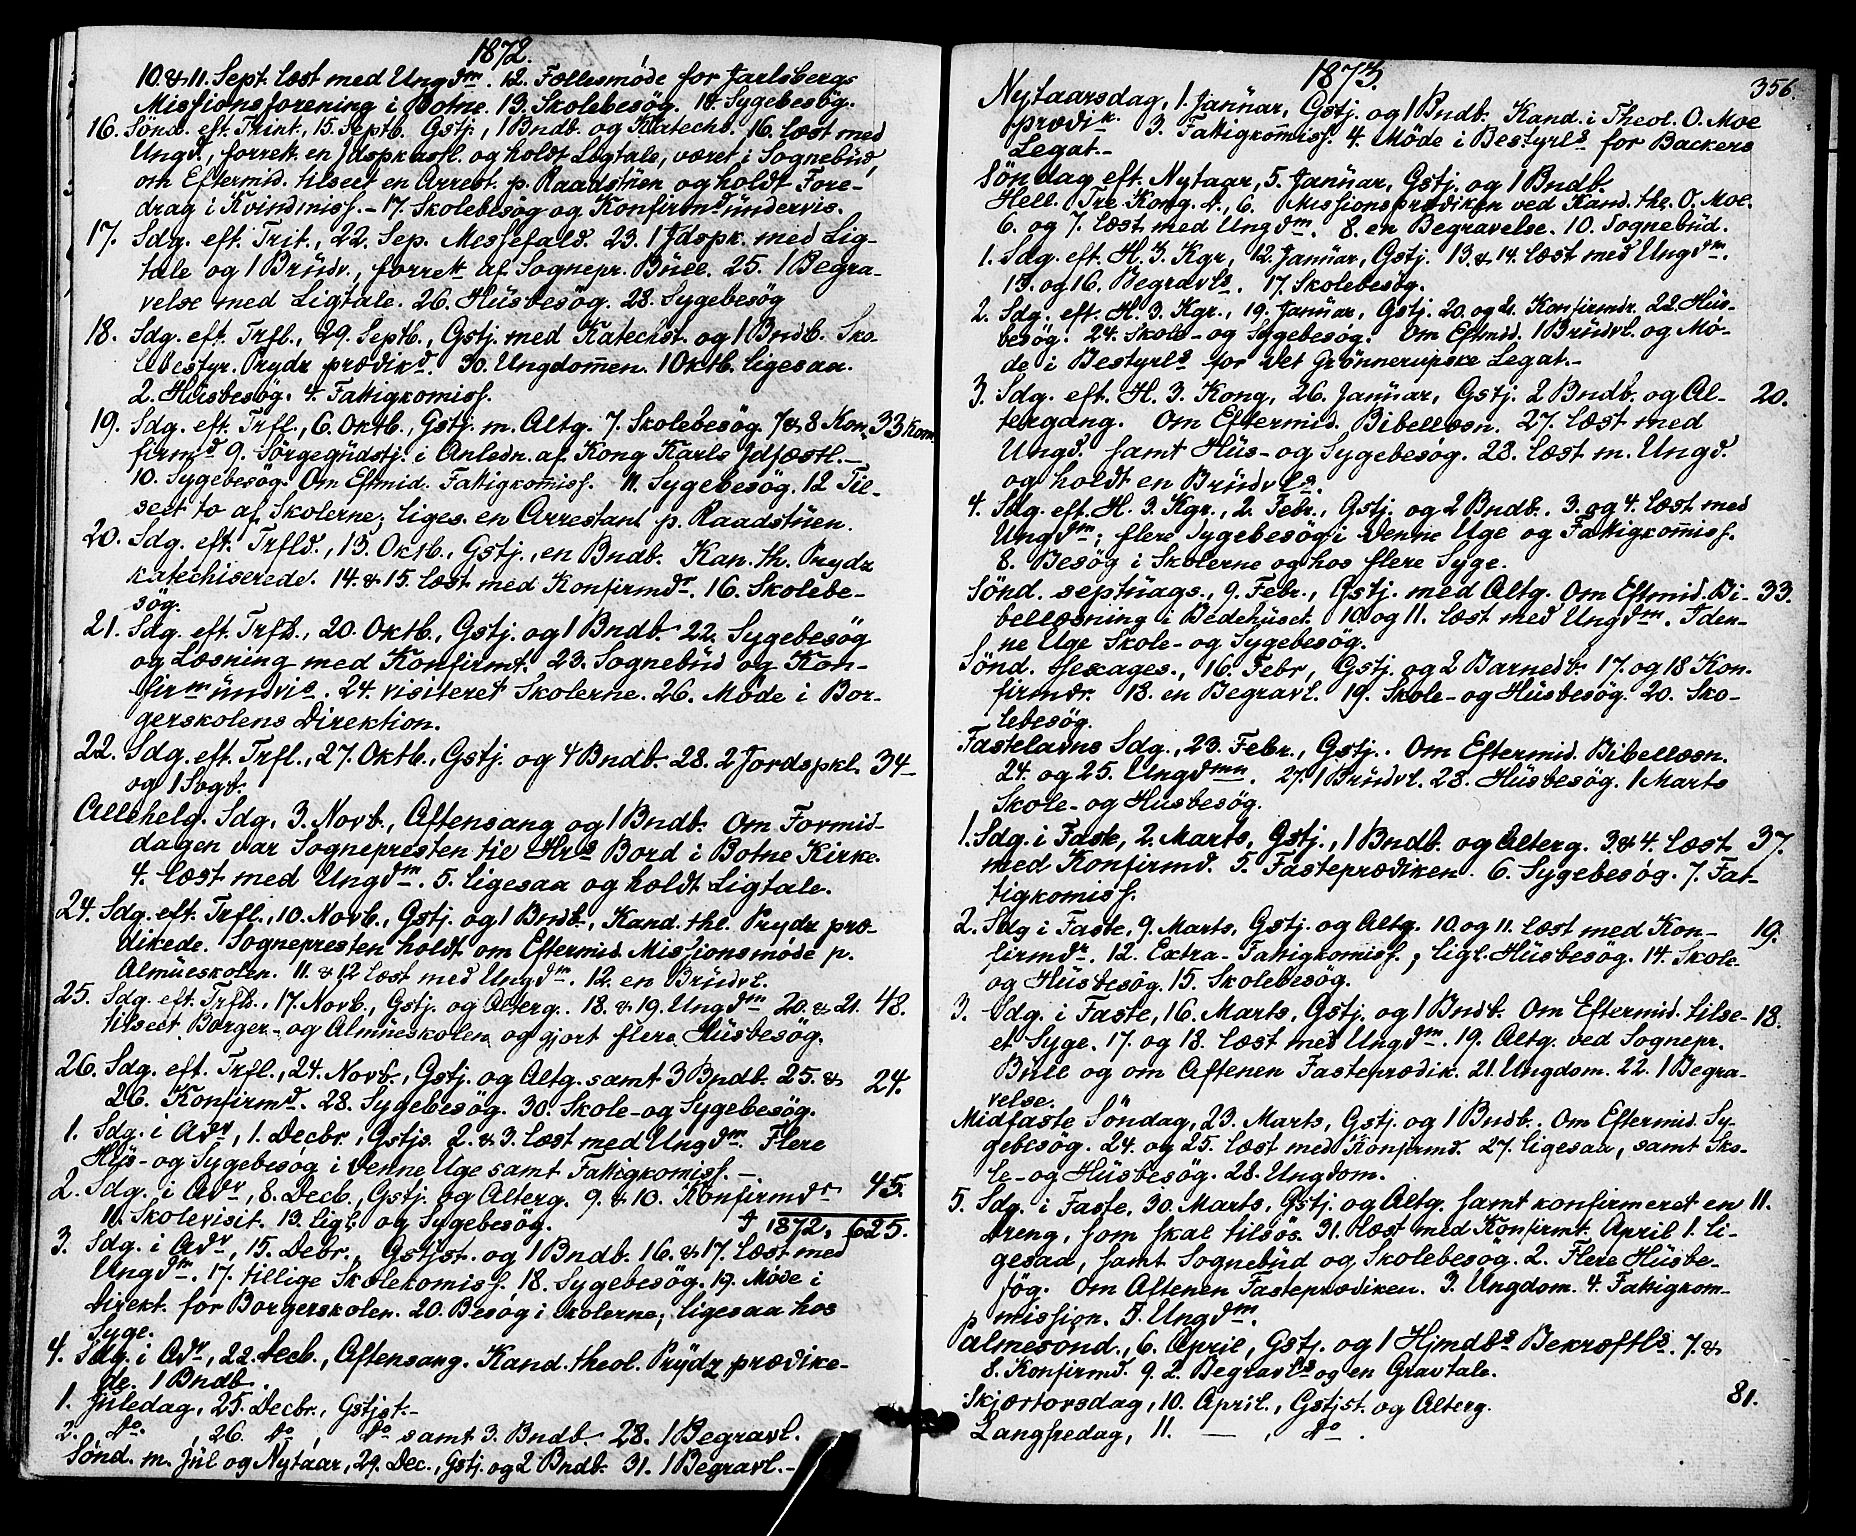 1872.
10. & 11. Sept. læst med Ungdm. 12. Fællesmöde for Jarlsbergs
Missionsforening i Botne. 13. Skolebesög. 14. Sygebesög.
16. Sönd. eft. Trint., 15. Septb. Gstj., 1 Bndb. og Katechs. 16. læst med
Ungd., forrett. en Jdspkastl. og holdt Ligtale, været i Sognebüd,
om Eftermid. tilseet en Arrest. p. Raadstüen og holdt Fore-
drag i Kvindmiss. - 17. Skolebesög og Konfirmdündervis.
17. Sdg. eft. Trit., 22. Sep. Messefald. 23. 1 Jdspk. med Lig-
tale og 1 Brüdv., forrett af Sognepr. Büll. 25. 1 Begra-
velse med Ligtale. 26. Hüsbesög. 28. Sygebesög
18. Sdg. eft. Trfl., 29. Septb., Gstj. med Katechst. og 1 Bndb. Sko-
lebestyr. Prydz prædikd. 30. Ungdommen. 1 Oktb. ligesaa.
2. Hüsbesög. 4. Fattigkomiss.
19. Sdg. eft. Trfl., 6. Oktb., Gstj. m. Altg. 7. Skolebesög. 7 & 8 Kon- 33 Kom.
firmd 9. Sörgegüdstj. i Anledn. af Kong Karls Jdfæstl. -
10. Sygebesög. Om Eftmid. Fattigkomiss. 11. Sygebesög. 12 Til-
seet to af Skolerne; liges. en Arrestant p. Raadstüen.
20. Sdg. eft. Trfld., 13. Oktb., Gstj., en Bndb. Kan. th. Prydz
katechiserede. 14. & 15. læst med Konfirmdr. 16. Skolebe-
sög.
21. Sdg. eft. Trfld., 20. Oktb., Gstj. og 1 Bndb. 22. Sygebesög
og Læsning med Konfirmt. 23. Sognebüd og Kon-
firmündvis. 24. visiteret Skolerne. 26. Möde i Bor-
gerskolens Direktion.
22. Sdg. eft. Trfl., 27. Oktb., Gstj. og 4 Bndb. 28. 2 Jordspkl. 34
og 1 Sogb.
Allehelg. Sdg., 3. Novb., Aftensang og 1 Bndb. Om Formid-
dagen var Sognepresten til Hrs Bord i Botne Kirke.
4. læst med Ungdm. 5. ligesaa og holdt Ligtale.
24. Sdg. eft. Trfl., 10. Novb., Gstj. og 1 Bndb., Kand. thl. Prydz præ-
dikede. Sognepresten holdt om Eftermid. Missionsmöde p.
Almüeskolen. 11. & 12 læst med Ungdm. 12. en Brüdvl.
25. Sdg. eft. Trfld., 17. Novb., Gstj. og Alterg. 18. & 19. Ungdm 20. & 21. 48.
tilseet Borger- og Almueskolen og gjort flere Hüsbesög.
26. Sdg. eft. Trfl., 24. Novb., Gstj. og Altg. samt 3 Bndb. 25. & 24.
26. Konfirmd. 28. Sygebesög. 30. Skole- og Sygebesög.
1. Sdg. i Advt, 1. Decbr., Gstjs. 2. & 3. læst med Ungdm. Flere
Hüs- og Sygebesög i denne Uge samt Fattigkomiss. -
2. Sdg. i Advt, 8. Decb., Gstj. og Alterg. 9. & 10. Konfirmdr 45.
11. Skolevisit. 13. ligl. og Sygebesög. I 1872, 625.
3. Sdg. i Advt, 15. Debr., Gstjst. og 1 Bndb. 16. & 17. læst med
Ungdm. 17. tillige Skolekomiss. 18. Sygebesög. 19. Möde i
Direkt. for Borgerskolen. 20. Besög i Skolerne, ligesaa hos
Syge.
4. Sdg. i Advt, 22. Decb., Aftensang. Kand. theol. Prydz prædike-
de. 1 Bndb.
1. Jüledag, 25. Decbr., Gstjst. -
2. do., 26. do, do samt 3. Bndb. 28. 1 Begravl.
Sönd. m. Jül og Nytaar, 29. Dec., Gstj. og 2 Bndb. 31. 1 Begravl. -
1873.
356.
Nytaarsdag, 1. Janüar, Gstj. og 1 Bndb. Kand. i Theol. O. Moe
prædik. 3. Fattigkomiss. 4. Möde i Bestyrls for Backers
Legat. -
Söndag eft. Nytaar, 5. Janüar, Gstj. og 1 Bndb.
Hell. Tre Kong. D., 6. Missionsprædiken ved Kand. the. O. Moe.
6. og 7. læst med Ungdm. 8. en Begravelse. 10. Sognebüd.
1. Sdg. eft. H. 3. Kgr, 12. Janüar, Gstj. 13. & 14. læst med Ungdm.
15. og 16. Begravls. 17. Skolebesög.
2. Sdg. eft. H. 3. Kgr., 19. Janüar, Gstj. 20. og 21. Konfirmdr. 22. Hüs-
besög. 24. Skole- og Sygebesög. Om Eftmid. 1 Brüdvl. og Mö-
de i Bestyrls for Det Grönnerupske Legat. -
3. Sdg. eft. H. 3. Kong, 26. Janüar, Gstj. 2 Bndb. og Al- 20.
tergang. Om Eftermid. Bibellæsn. 27. læst med
Ungd. samt Hüs- og Sygebesög. 28. læst m. Ungd.
og holdt en Brüdvls.
4. Sdg. eft. H. 3. Kgr., 2. Febr., Gstj. og 2 Bndb. 3. og 4. læst med
Ungdm; flere Sygebesög i denne Uge og Fattigkomiss.
8. Besög i Skolerne og hos flere Syge.
Sönd. septüags., 9. Febr., Gstj. med Altg. Om Eftmid. Bi- 33.
bellæsning i Bedehüset. 10. og 11. læst med Ungdm. I den-
ne Uge Skole- og Sygebesög.
Sönd. Sexages., 16. Febr, Gstj. og 2 Barnedb. 17. og 18 Kon-
firmdr. 18. en Begravl. 19. Skole- og Hüsbesög. 20. Sko-
lebesög.
Fastelavns Sdg., 23. Febr., Gstj. Om Eftermid. Bibellæsn.
24. og 25. Ungdmn. 27. 1 Brüdvl. 28. Hüsbesög. 1 Marts
Skole- og Hüsbesög.
1. Sdg. i Faste, 2. Marts, Gstj., 1 Bndb. og Alterg. 3. & 4. læst 37.
med Konfirmd. 5. Fasteprædiken. 6. Sygebesög. 7. Fat-
tigkomiss.
2. Sdg i Faste, 9. Marts, Gstj. og Altg. 10. og 11. læst med Kon- 19.
firmdr. 12. Extra-Fattigkomiss., ligl. Hüsbesög. 14. Skole
og Hüsbesög. 15. Skolebesög.
3. Sdg. i Faste, 16. Marts, Gstj. og 1 Bndb. Om Eftermid. tilse- 18.
et Syge. 17. og 18. læst med Ungdm. 19. Altg. ved Sognepr.
Büll og om Aftenen Fasteprædik. 21. Ungdom. 22. 1 Begra-
velse.
Midfaste Söndag, 23. Marts, Gstj. og 1 Bndb. Om Eftermid. Sy-
gebesög. 24. og 25. læst med Konfirmd. 27. ligesaa, samt Sko-
le- og Hüsbesög. 28. Ungdom.
5. Sdg. i Faste, 30. Marts, Gstj. og Altg. samt konfirmeret en 11.
Dreng, som skal tilsös. 31. læst med Konfirmt. April 1. li-
gesaa, samt Sognebüd og Skolebesög. 2. Flere Hüsbe-
sög. Om Aftenen Fasteprædiken. 3. Ungdom. 4. Fattigkom-
mission. 5. Ungdm.
Palmesönd., 6. April, Gstj. og 1 Hjmdbs Bekræftls. 7. &
8. Konfirmd. 9. 2. Begravls og en Gravtale.
Skjærtorsdag, 10. April., Gstjst. og Alterg. 81.
Langfredag, 11. — , do.